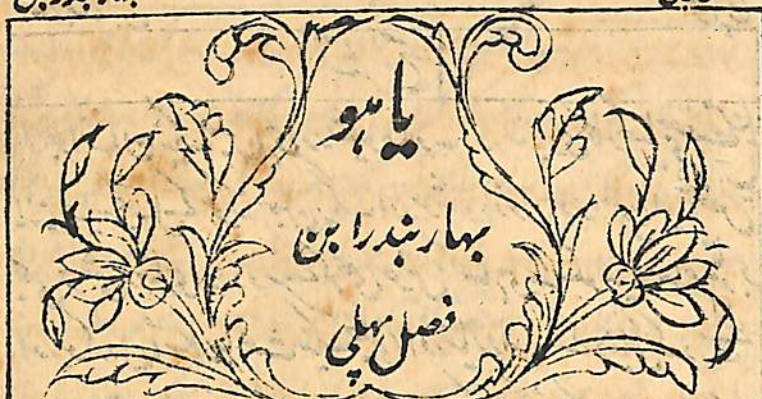 یا ہو
بہار بندرابن
فصل پہلی